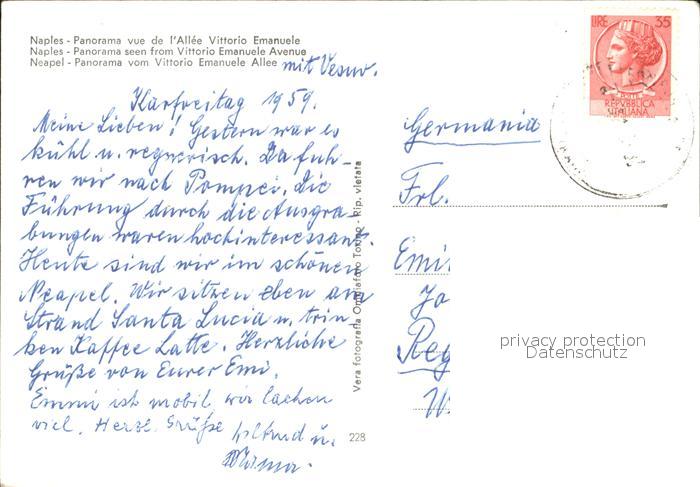 Naples - Panorama vue de l'Allée Vittorio Emanuele
Naples - Panorama seen from Vittorio Emanuele Avenue
Neapel - Panorama vom Vittorio Emanuele Allee
mit Vesuv.
Karfreitag 1959.
Meine Lieben! Gestern war es
kühl u. regnerisch. Da fuh-
ren wir nach Pompei. Die
Führung durch die Ausgra-
bungen waren hochinteressant.
Heute sind wir im schönen
Neapel. Wir sitzen eben am
Strand Santa Lucia u. trin-
ken Kaffee Latte. Herzliche
Grüße von Eurer Emi.
Emmi ist mobil, wir lachen
viel. Herzl. Grüße
u.
Mama.
228
Vera fotografia Torino - Rip. vietata
LIRE 35
REPVBBLICA
ITALIANA
Germania
Frl.
Emi
Jo
Reg
W
privacy protection
Datenschutz